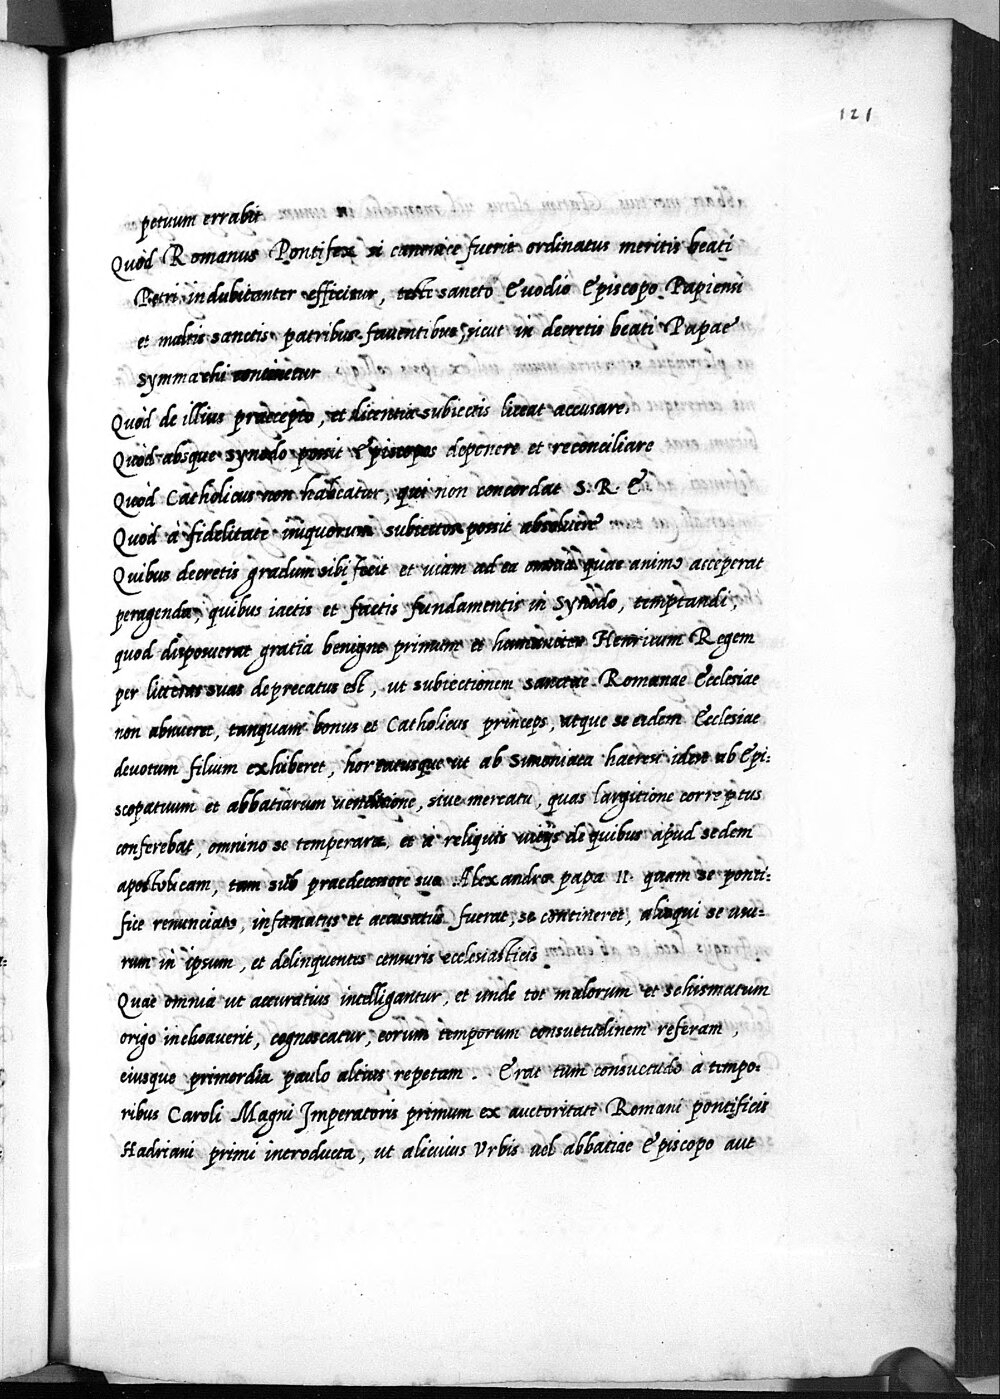 121
petuum errabit
Quòd Romanus Pontifex si canonice fuerit ordinatus meritis beati
Petri indubitanter efficitur, teste sancto Evodio Episcopo Papiensi
et multis sanctis patribus faventibus, sicut in decretis beati Papae
Symmachi continetur
Quòd de illius praecepto, et licentia subiectis liceat accusare.
Quòd absque synodo possit Episcopos deponere et reconciliare
Quòd Catholicus non habeatur, qui non concordat S. R. E
Quòd à fidelitate iniquorum subiectos possit absolvere
Quibus decretis gradum sibi fecit et viam ad ea omnia quae animo acceperat
peragenda, quibus iactis et factis fundamentis in Synodo, temptandi,
quod disposuerat gratia benigne primum et humaniter Henricum Regem
per litteras suas deprecatus est, ut subiectionem sanctae Romanae Ecclesiae
non abnueret, tanquam bonus et Catholicus princeps, atque se eidem Ecclesiae
devotum filium exhiberet, hortatusque ut ab Simoniaca haeresi idest ab Epi:
scopatuum et abbatiarum venditione, sive mercatu, quas largitione correptus
conferebat, omnino se temperaret, et à reliquis vitijs de quibus apud sedem
apostolicam, tam sub praedecessore suo Alexandro papa II. quam se ponti:
fice renunciato, infamatus et accusatus fuerat, se contineret, alioqui se usu:
rum in ipsum, et delinquentes censuris ecclesiasticis
Quae omnia ut accuratius intelligantur, et unde tot malorum et schismatum
origo inchoaverit, cognoscatur, eorum temporum consuetudinem referam,
eiusque primordia paulo altius repetam. Erat tum consuetudo à tempo:
ribus Caroli Magni Imperatoris primum ex auctoritate Romani pontificis
Hadriani primi introducta, ut alicuius Urbis vel abbatiae Episcopo aut